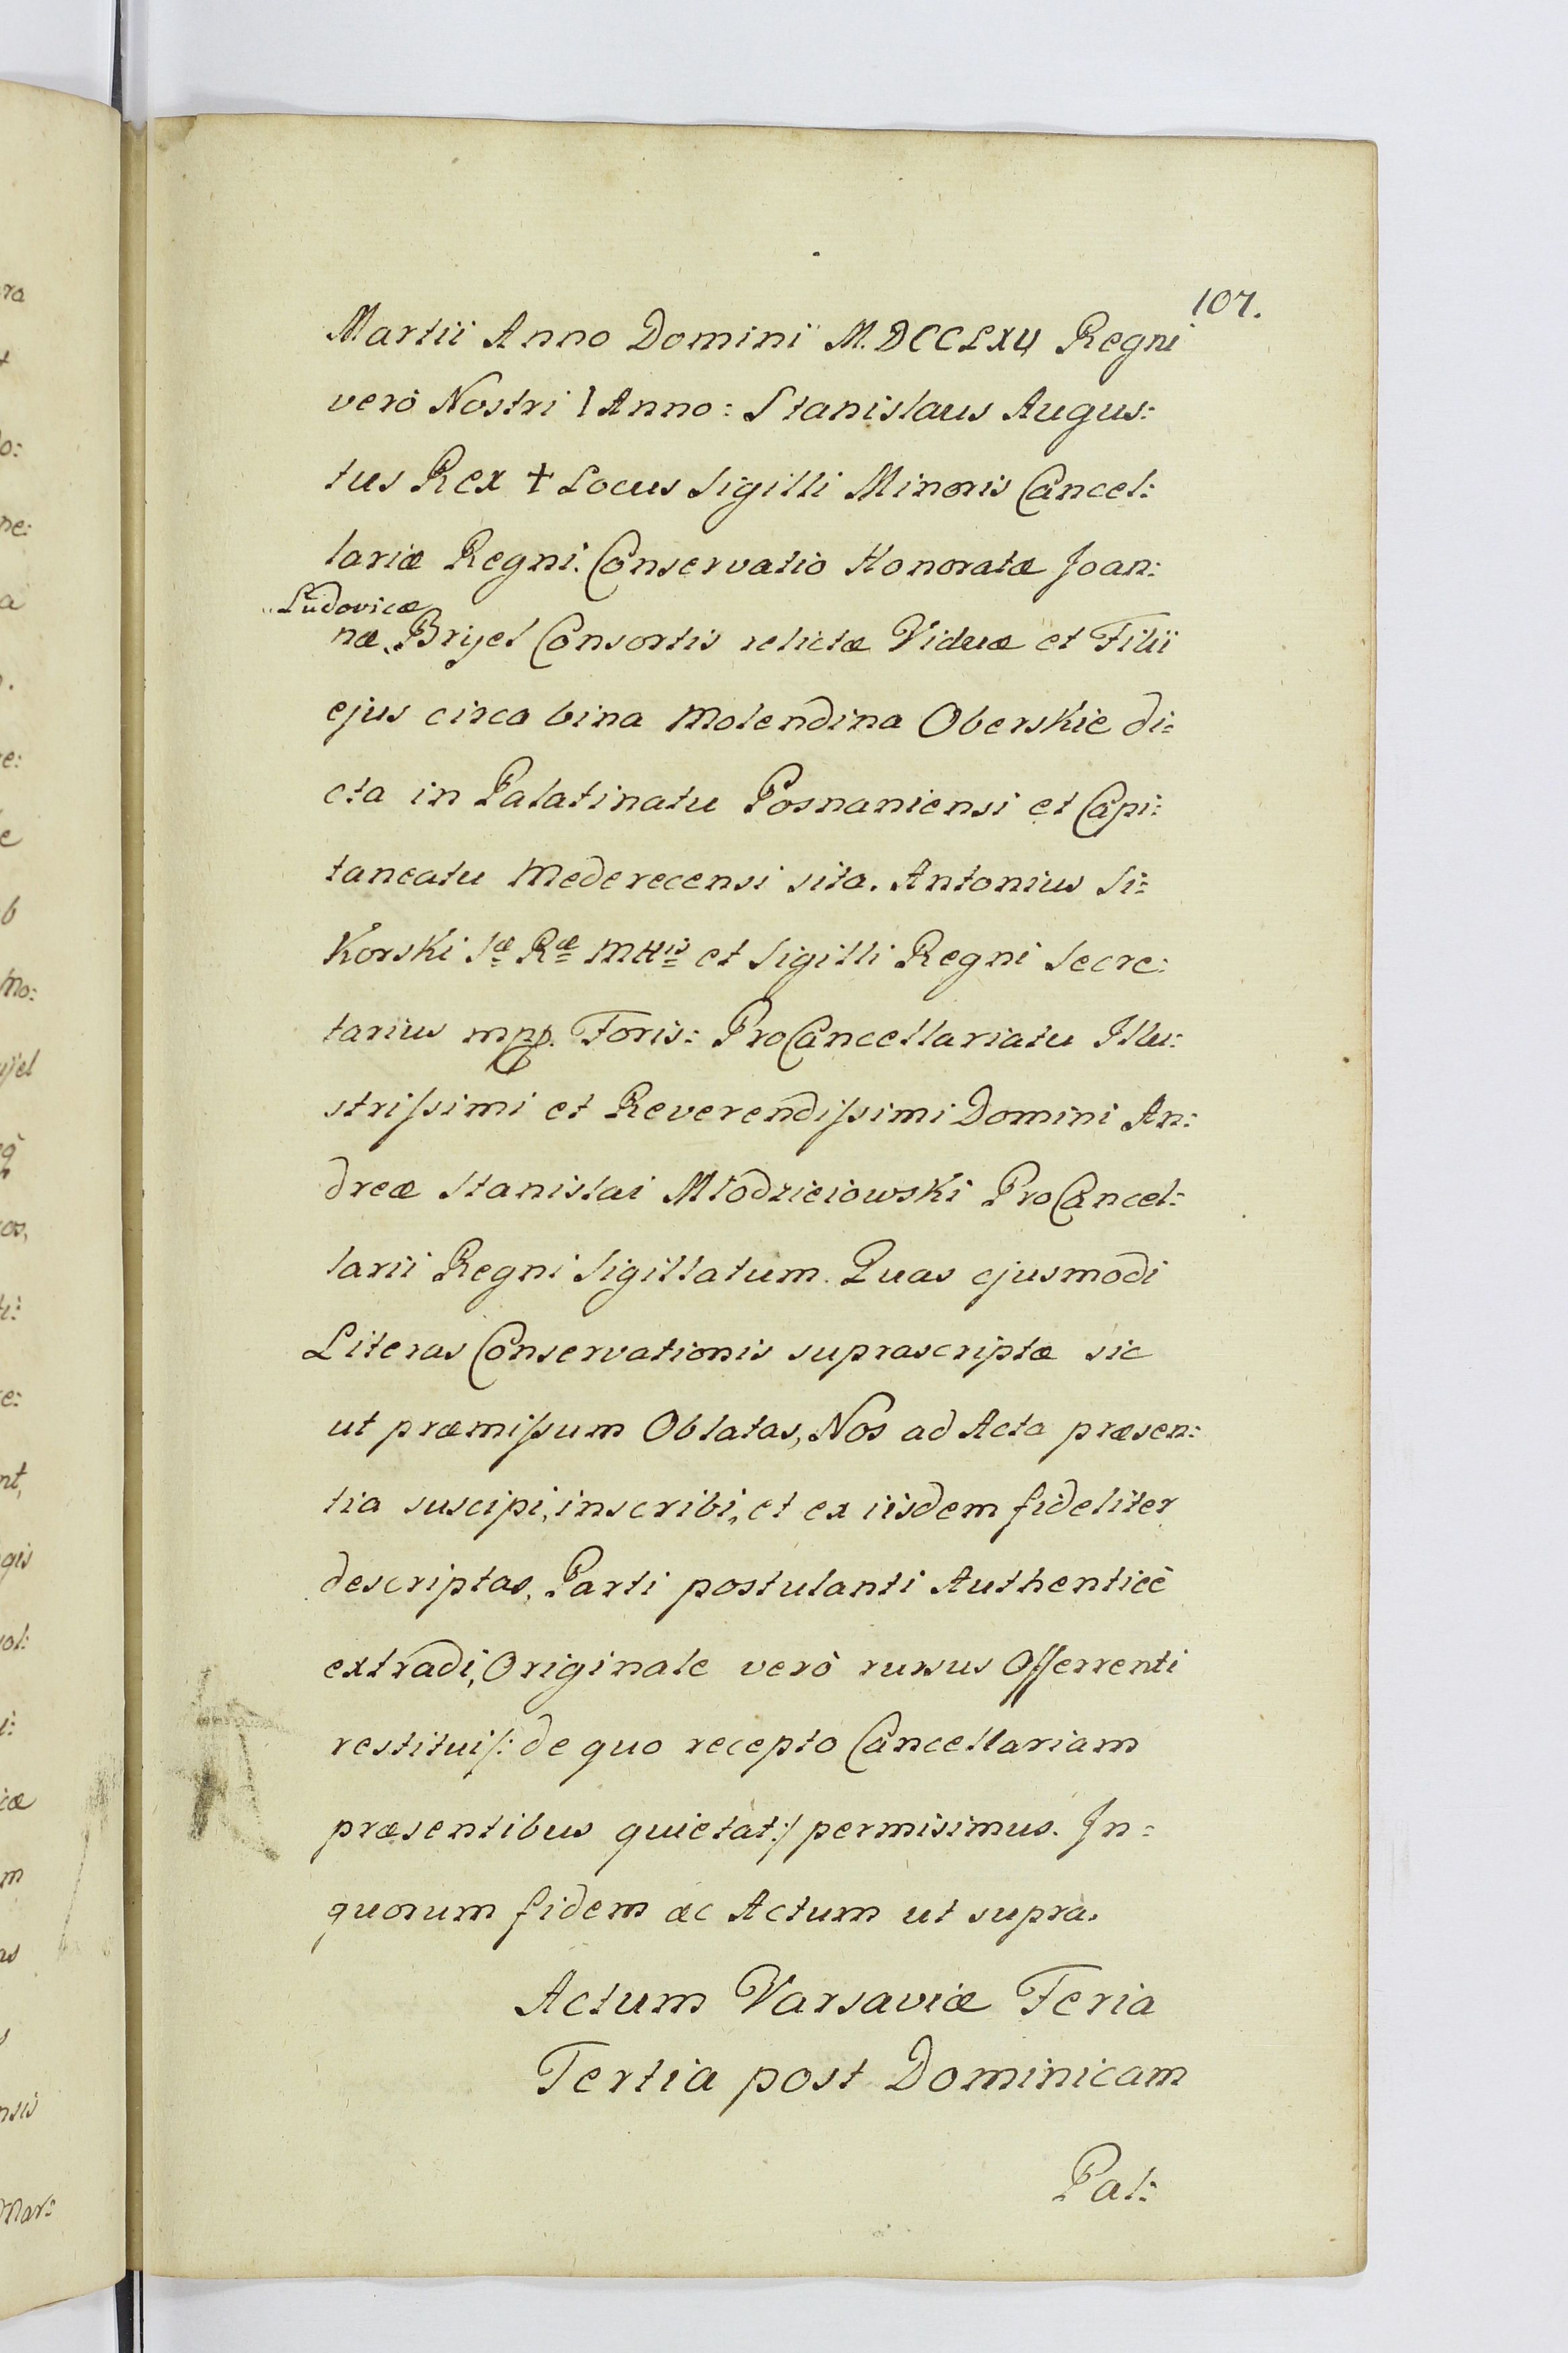 107.
Martii Anno Domini M.DCCLXV Regni
verò Nostri I Anno: Stanislaus Augus:
tus Rex + Locus Sigilli Minoris Cancel:
lariæ Regni. Conservatio Honoratæ Joan:
Ludovicæ
næ Bryel Consortis relictæ Viduæ et Filii
ejus circa bina Molendina Oberskie di:
cta in Palatinatu Posnaniensi et Capi:
taneatu Mederecensi sita. Antonius Si:
korski Sæ Ræ Mttis et Sigilli Regni Secre:
tarius mpp. Foris: ProCancellariatu Illu:
strissimi et Reverendissimi Domini An:
dreæ Stanislai Młodzieiowski ProCancel:
larii Regni Sigillatum. Quas ejusmodi
Literas Conservationis suprascriptæ sic
ut præmissum Oblatas, Nos ad Acta præsen:
tia suscipi, inscribi, et ex iisdem fideliter
descriptas, Parti postulanti Authenticè
extradi, Originale verò rursus Offerrenti
restitui/: de quo recepto Cancellariam
præsentibus quietat:/ permisimus. In=
quorum fidem ac Actum ut supra.
Actum Varsaviæ Feria
Tertia post Dominicam
Pal:
ra
o:
ne:
a
e:
e
b
Mo:
yel
os,
e:
nt,
gis
ol:
iæ
m
as
s
nsis
Mar: